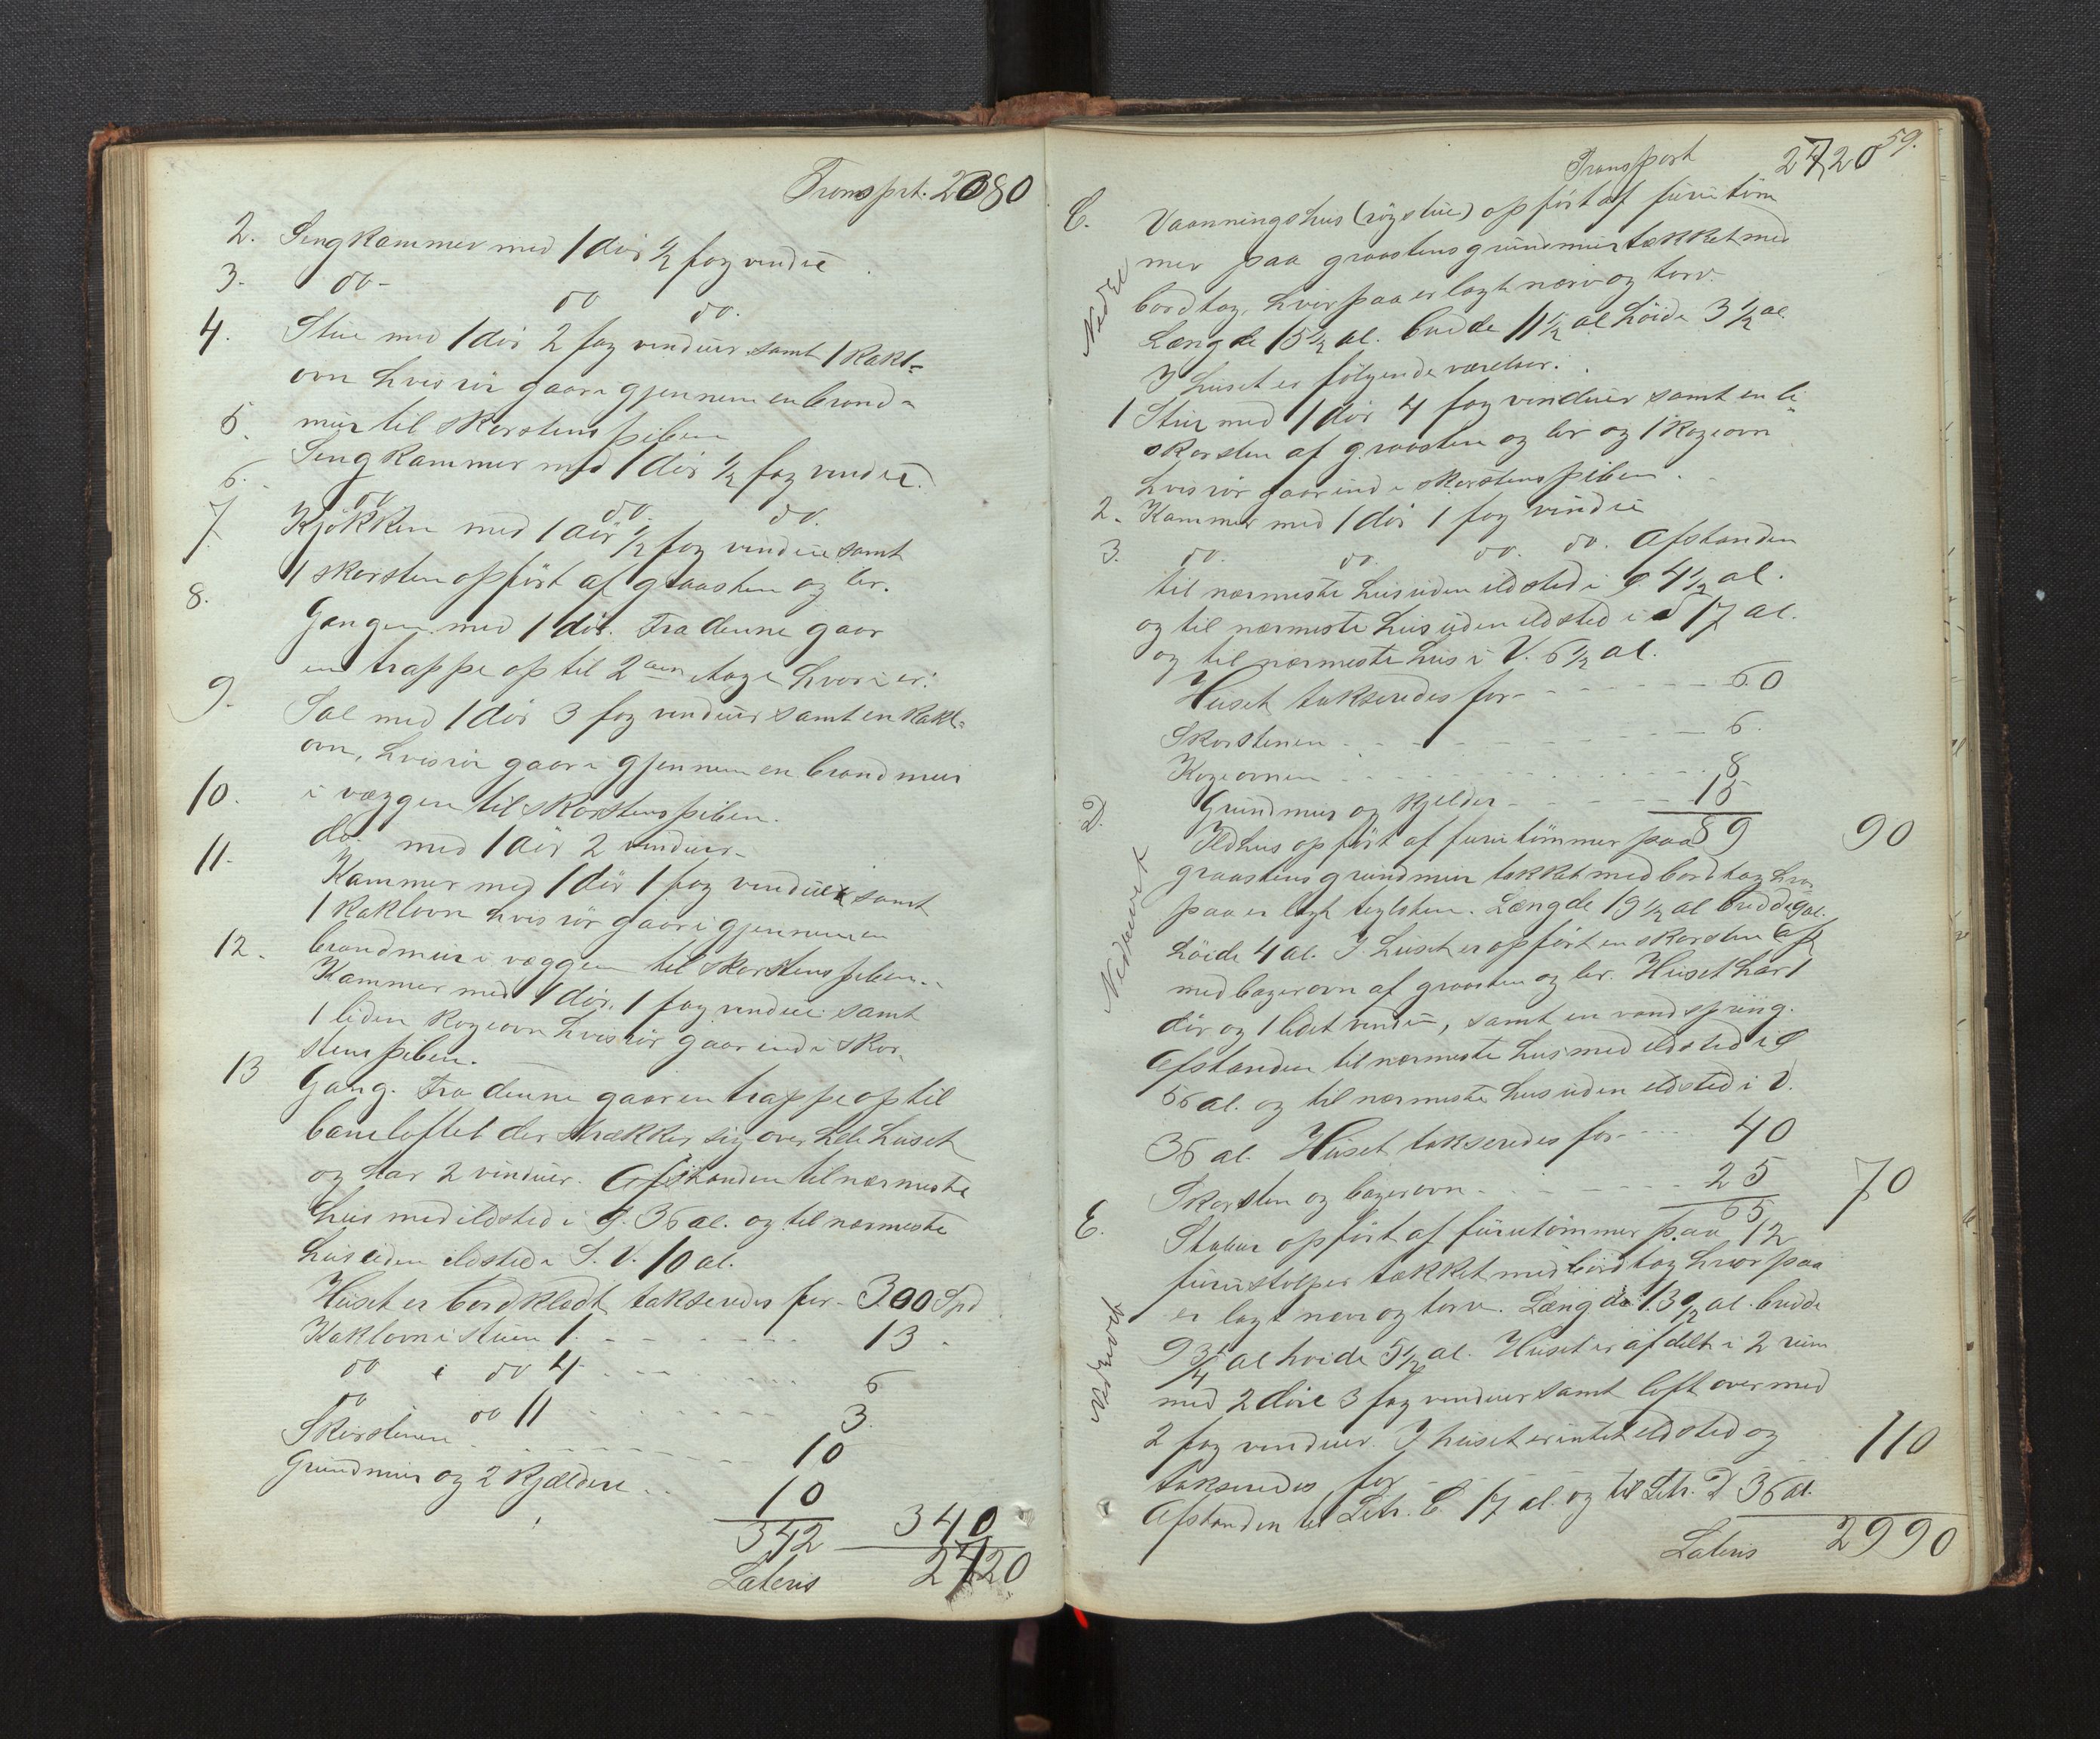 Transprt. 2080
2. Sengkammer med 1 dör 1/2 fag vindue
3. do - do do.
4. Stue med 1 dör 2 fag vinduer samt 1 Kakl-
ovn hvis rör gaar gjennem en brand-
mur til skorstenspiben
5. Sengkammer med 1 dör 1/2 fag vindue.
6. do do. do.
7. Kjökken med 1 dör 1/2 fag vindue samt
1 skorsten opfört af graasten og ler.
8. Gangen med 1 dör. Fra denne gaar
en trappe op til 2den etage hvori er:
9. Sal med 1 dör 3 fag vinduer samt en Kakl-
ovn, hvis rör gaar gjennem en brandmur
i væggen til skorstenspiben.
10. do. med 1 dör 2 vinduer -
11. Kammer med 1 dör 1 fag vindue samt
1 Kaklovn hvis rör gaar gjennem en
brandmur i væggen til skorstenspiben.
12. Kammer med 1 dör, 1 fag vindue samt
1 liden Kogeovn hvis rör gaar ind i skor-
stenspiben.
13 Gang. Fra denne gaar en trappe op til
baneloftet der strækker sig over hele huset
og har 2 vinduer. Afstanden til nærmeste
hus med ildsted i Ø. 36 al. og til nærmeste
hus uden ildsted i S. V. 10 al.
Huset er bordklædt takseredes for - 300 Spd
Kaklovn i stuen 1. - - - 13 -
do i do 4 - - - 6
do do 11 - - - 3.
Skorstenen - - - 10
Grundmur og 2 Kjældere - - 10
342 340
Lateris 2420
59.
Transport 2420
C. Vaaningshus (rögstue) opfört af furutöm
mer paa graastens grundmur tækket med
bordtag, hvorpaa er lagt næver og torv.
Længde 15 1/2 al. bredde 11 1/2 al höide 3 1/2 al.
I huset er fölgende værelser.
1 Stue med 1 dör 4 fag vinduer samt en
skorsten af graasten og ler og 1 Kogeovn
hvis rör gaar ind i skorstenspiben.
2. Kammer med 1 dör 1 fag vindue
3. do. do. do. do. Afstanden
til nærmeste hus uden ildsted i Ø 4 1/2 al.
og til nærmeste hus uden ildsted i S 17 al.
og til nærmeste hus i V. 6 1/2 al.
Huset takseredes for - - - 60
Skorstenen - - - 6.
Kogeovnen - - - 8
Grundmur og Kjelder - - - 15
89 90
D. Ildhus opfört af furutömmer paa
graastens grundmur tækket med bordtag hvor-
paa er lagt teglsten. Længde 19 1/2 al bredde 9 al.
höide 4 al. I huset er opfört en skorsten
med bagerovn af graasten og ler. Huset har 1
dör og 1 lidet vindue, samt en vandspring.
Afstanden til nærmeste hus med ildsted i Ø
56 al. og til nærmeste hus uden ildsted i V.
36 al. Huset takseredes for - - - 40
Skorsten og bagerovn - - - 25
65 70
E. Stabur opfört af furutömmer paa 12
furustolper tækket med bordtag hvorpaa
er lagt næver og torv. Længde 13 1/2 al. bredde
9 3/4 al höide 5 1/2 al. Huset er afdelt i 2 rum
med 2 döre 3 fag vinduer samt loft over med
2 fag vinduer. I huset er intet ildsted og
takseredes for - - - 110
Afstanden til Litr. C 17 al. og til Litr. D 36 al.
Lateris 2990
Nedrevet
Nedrevet